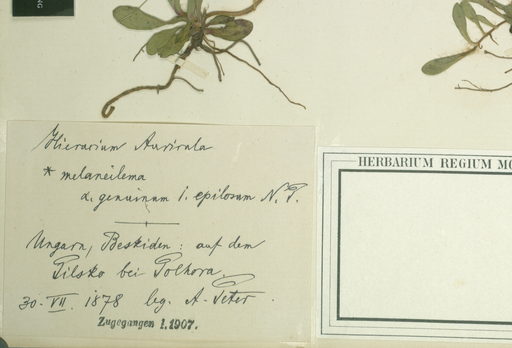 Hieracium Auricula
* melaneilema
α. genuinum 1. epilosum N. P.
Ungarn, Beskiden: auf dem
Pilsko bei Polhora.
30. VII. 1878 leg. A. Peter.
Zugegangen 1.1907.
HERBARIUM REGIUM MO